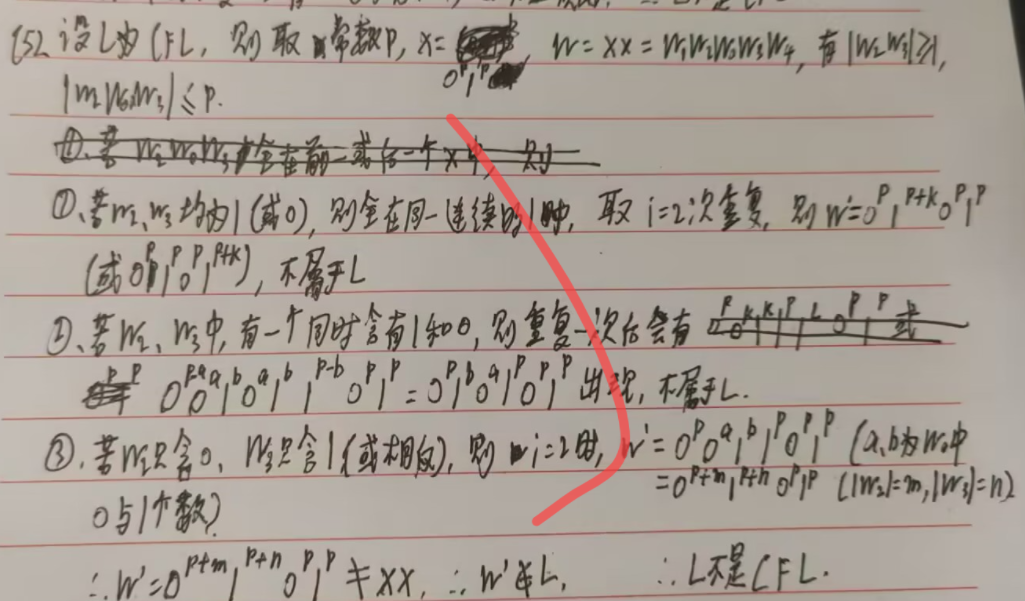 (5). 设L为CFL, 则取常数P, x= 0^P1^P, W=xx=W₁W₂W₀W₃W₄, 有|W₂W₃|≥1,
|W₂W₀W₃|≤P.
①、若W₂W₀W₃全在前一或后一个x中, 则
①、若W₂、W₃均为1(或0), 则全在同一连续的1中, 取i=2次重复, 则W'=0^P1^{P+k}0^P1^P
(或0^P1^P0^P1^{P+k}), 不属于L
②、若W₂、W₃中, 有一个同时含有1和0, 则重复一次后会有
0^{P-a}0^a1^b0^a1^b1^{P-b}0^P1^P=0^P1^b0^a1^P0^P1^P出现, 不属于L.
③、若W₂只含0, W₃只含1(或相反), 则i=2时, W'=0^P0^a1^b1^P0^P1^P (a,b为W₀中
=0^{P+m}1^{P+n}0^P1^P (|W₂|=m,|W₃|=n)
0与1个数)
∴W'=0^{P+m}1^{P+n}0^P1^P≠xx, ∴W'∉L, ∴L不是CFL.